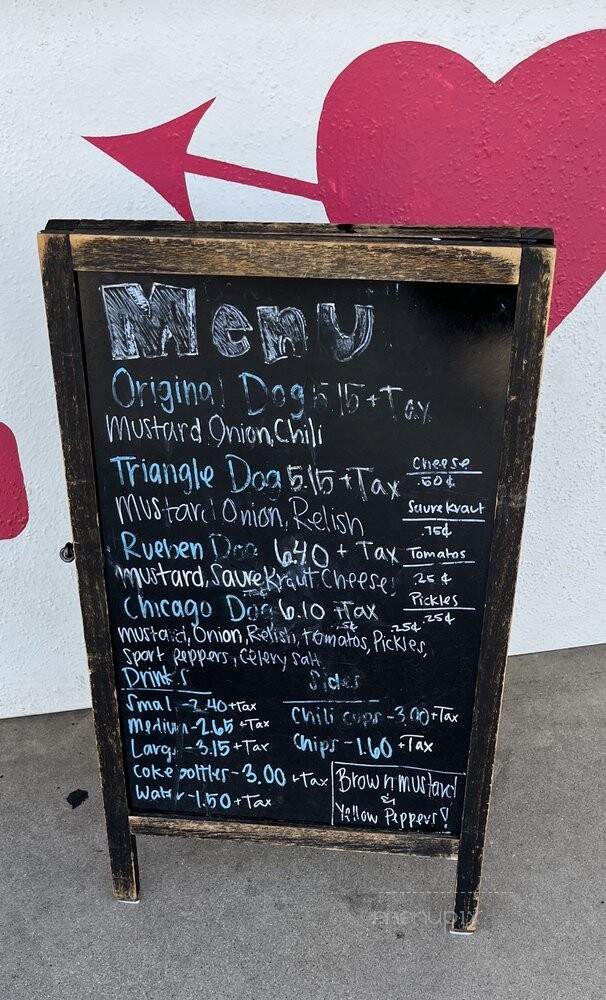 Menu
Original Dog 5.15 + Tax
Mustard, Onion, Chili
Triangle Dog 5.15 + Tax
Mustard Onion, Relish
Rueben Dog 6.40 + Tax
Mustard, Saurekraut Cheese
Chicago Dog 6.10 + Tax
Mustard, Onion, Relish, tomatos, Pickles,
Sport Peppers, Celery Salt
Cheese
.50¢
Saurekraut
.75¢
Tomatos
.25¢
Pickles
.25¢
Drinks
Small - 2.40 + Tax
Medium - 2.65 + Tax
Large - 3.15 + Tax
Coke bottles - 3.00 + Tax
Water - 1.50 + Tax
Sides
Chili cups - 3.00 + Tax
Chips - 1.60 + Tax
Brown mustard
&
Yellow Peppers!
menupix